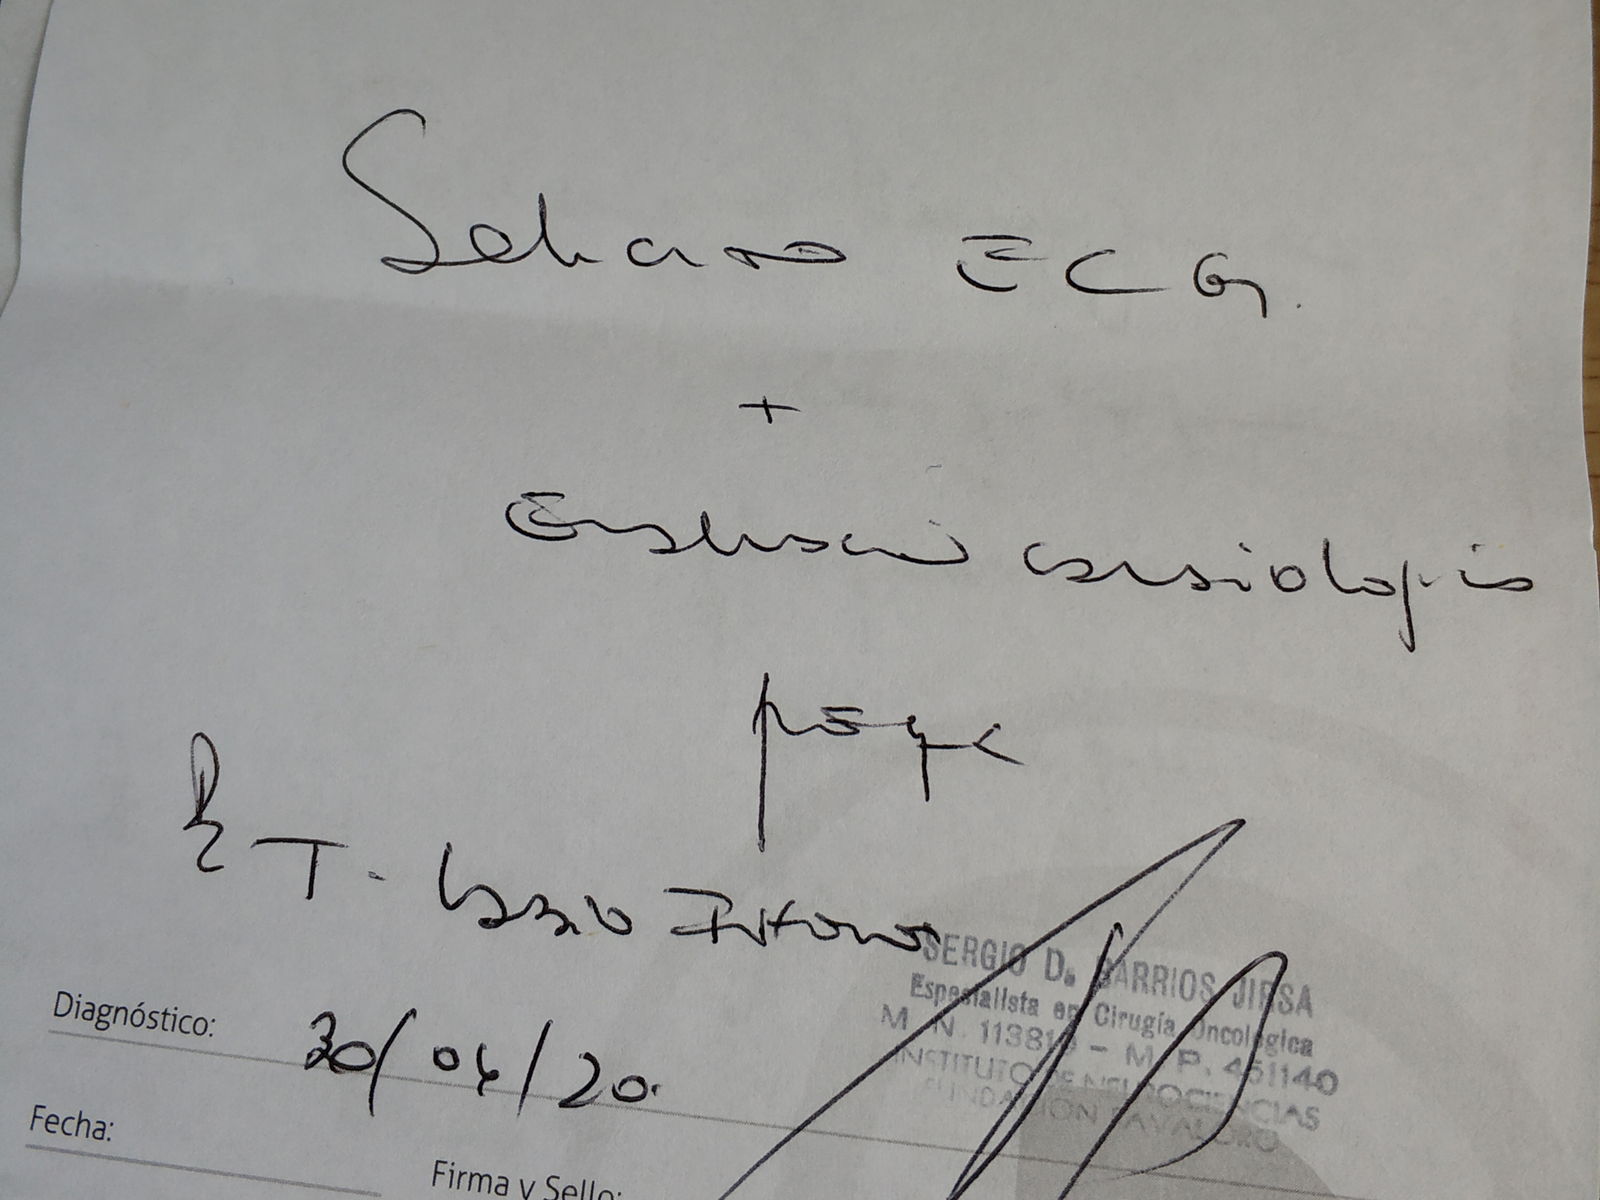 Solicito ECG.
+
Evaluación cardiológica
prequx
T.
SERGIO D. BARRIOS JIRSA
Especialista en Cirugía Oncológica
M. N. 113818 - M. P. 451140
INSTITUTO DE NEUROCIENCIAS
FUNDACION FAVALORO
Diagnóstico:
30/04/20.
Fecha:
Firma y Sello: